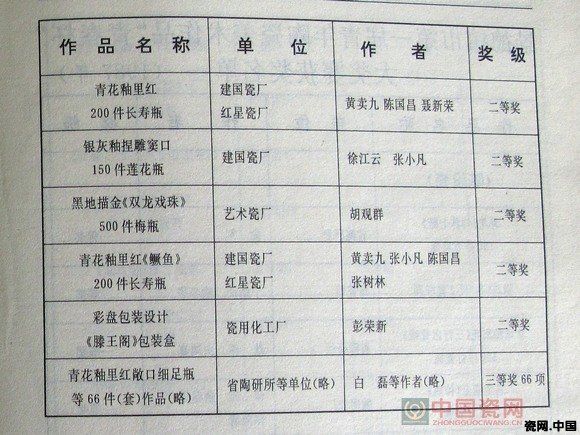 作品名称 单位 作者 奖级
青花釉里红 建国瓷厂
200件长寿瓶 红星瓷厂 黄卖九 陈国昌 聂新荣 二等奖
银灰釉捏雕窑口
150件莲花瓶 建国瓷厂 徐江云 张小凡 二等奖
黑地描金《双龙戏珠》
500件梅瓶 艺术瓷厂 胡观群 二等奖
青花釉里红《鳜鱼》 建国瓷厂 黄卖九 张小凡 陈国昌
200件长寿瓶 红星瓷厂 张树林 二等奖
彩盘包装设计
《滕王阁》包装盒 瓷用化工厂 彭荣新 二等奖
青花釉里红敞口细足瓶
等66件(套)作品(略) 省陶研所等单位(略) 白磊等作者(略) 三等奖66项
中国瓷网
ZHONGGUOCIWANG.CN
瓷网.中国